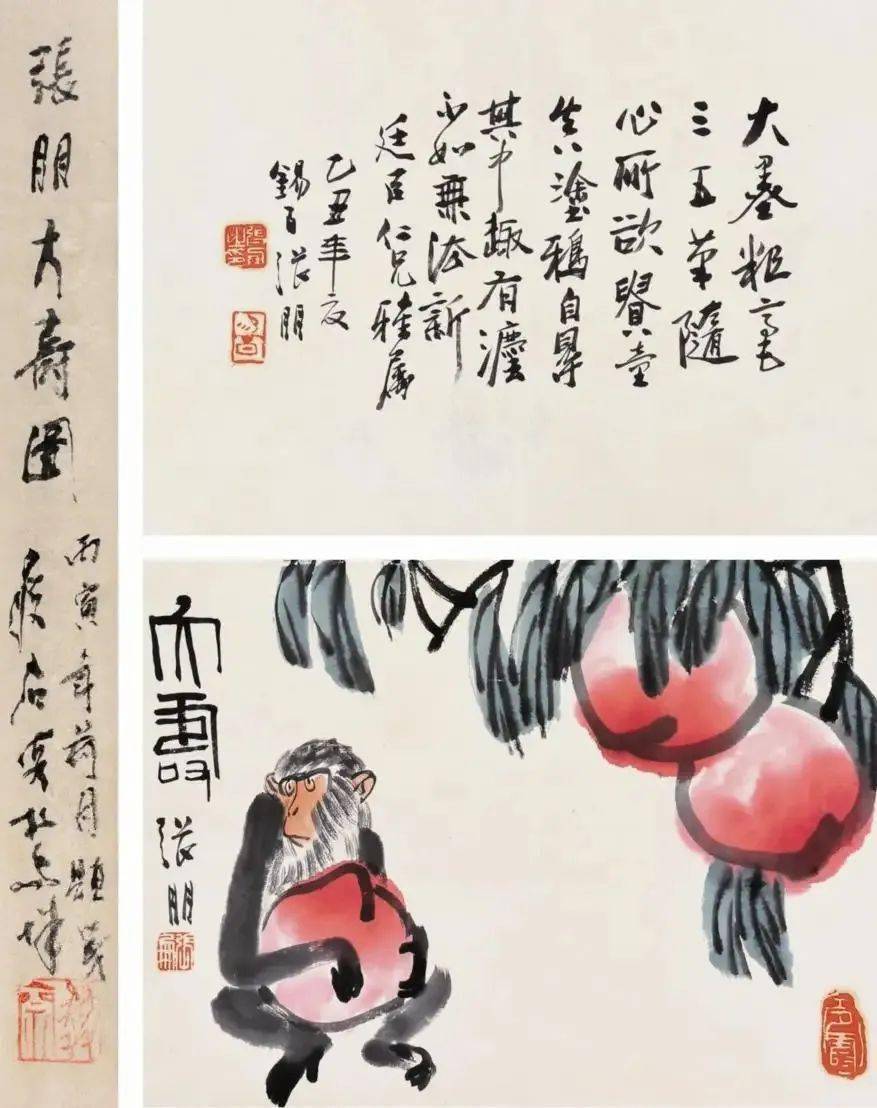 張朋大壽圖
丙寅年荷月題簽
大墨粗毫
三五筆隨
心所欲童
塗鴉自尋
其中趣有灋
不如無法新
廷臣仁兄雅属
乙丑年夜
錫百張朋
大壽
張朋